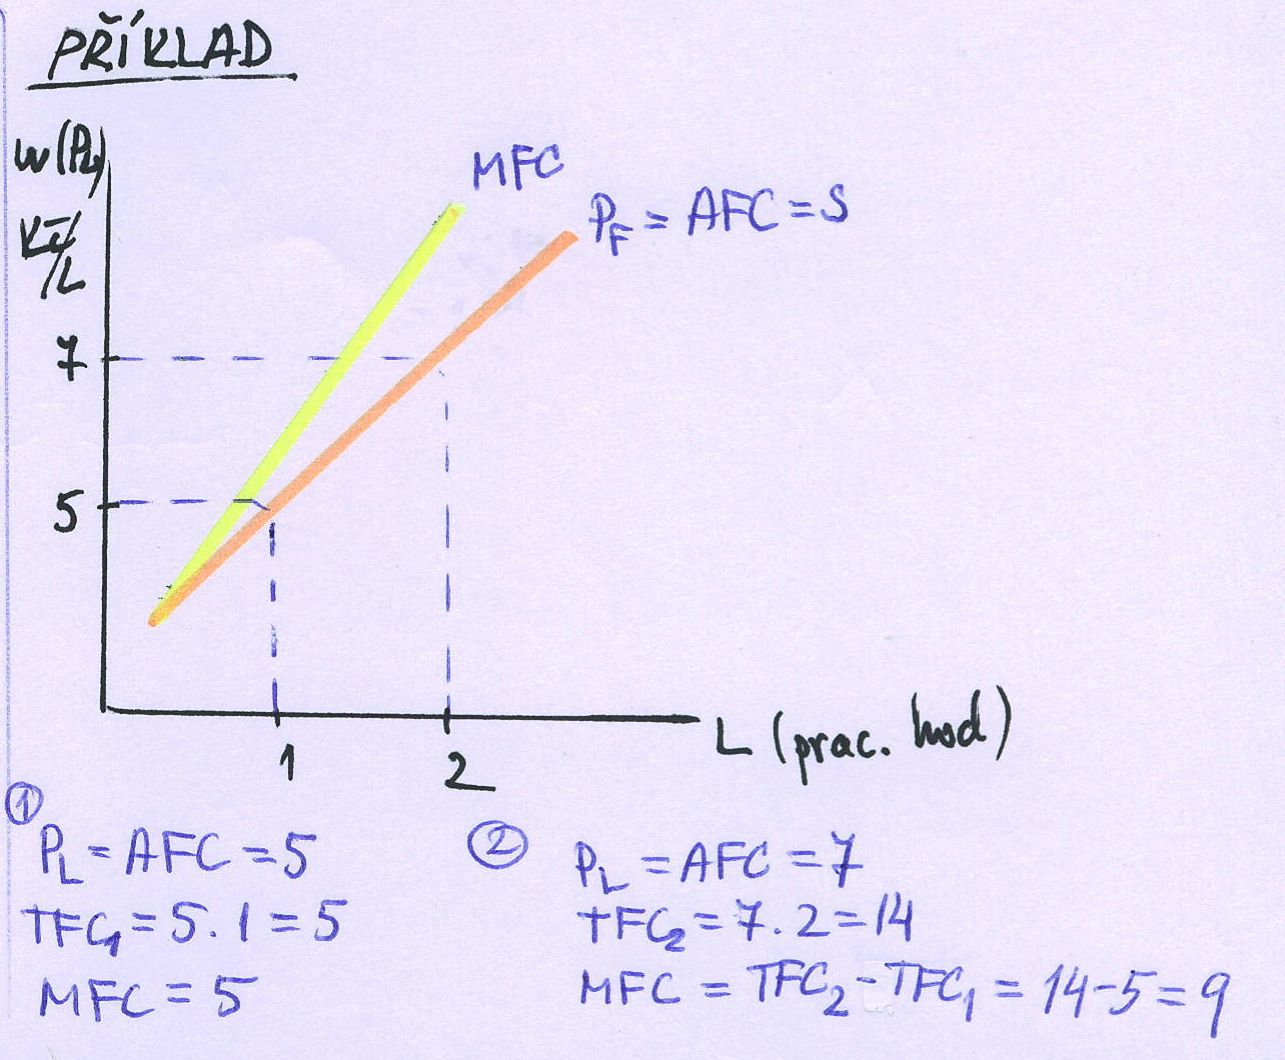 PŘÍKLAD
w(PL)
Kč/L
MFC
PF = AFC = S
7
5
1
2
L (prac. hod)
①
PL = AFC = 5
TFC1 = 5.1 = 5
MFC = 5
②
PL = AFC = 7
TFC2 = 7.2 = 14
MFC = TFC2 - TFC1 = 14-5 = 9